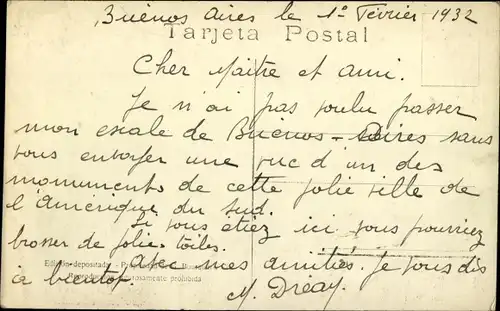 Buenos Aires le 1º Février 1932
Tarjeta Postal
Cher Maitre et ami.
Je n'ai pas voulu passer
mon escale de Buenos-Aires sans
vous envoyer une vue d'un des
monuments de cette jolie ville de
l'Amérique du Sud.
Si vous étiez ici vous pourriez
brosser de jolies toiles.
Edición depositada
Avec mes amitiés. Je vous dis
Reproducción rigurosamente prohibida
à bientot.